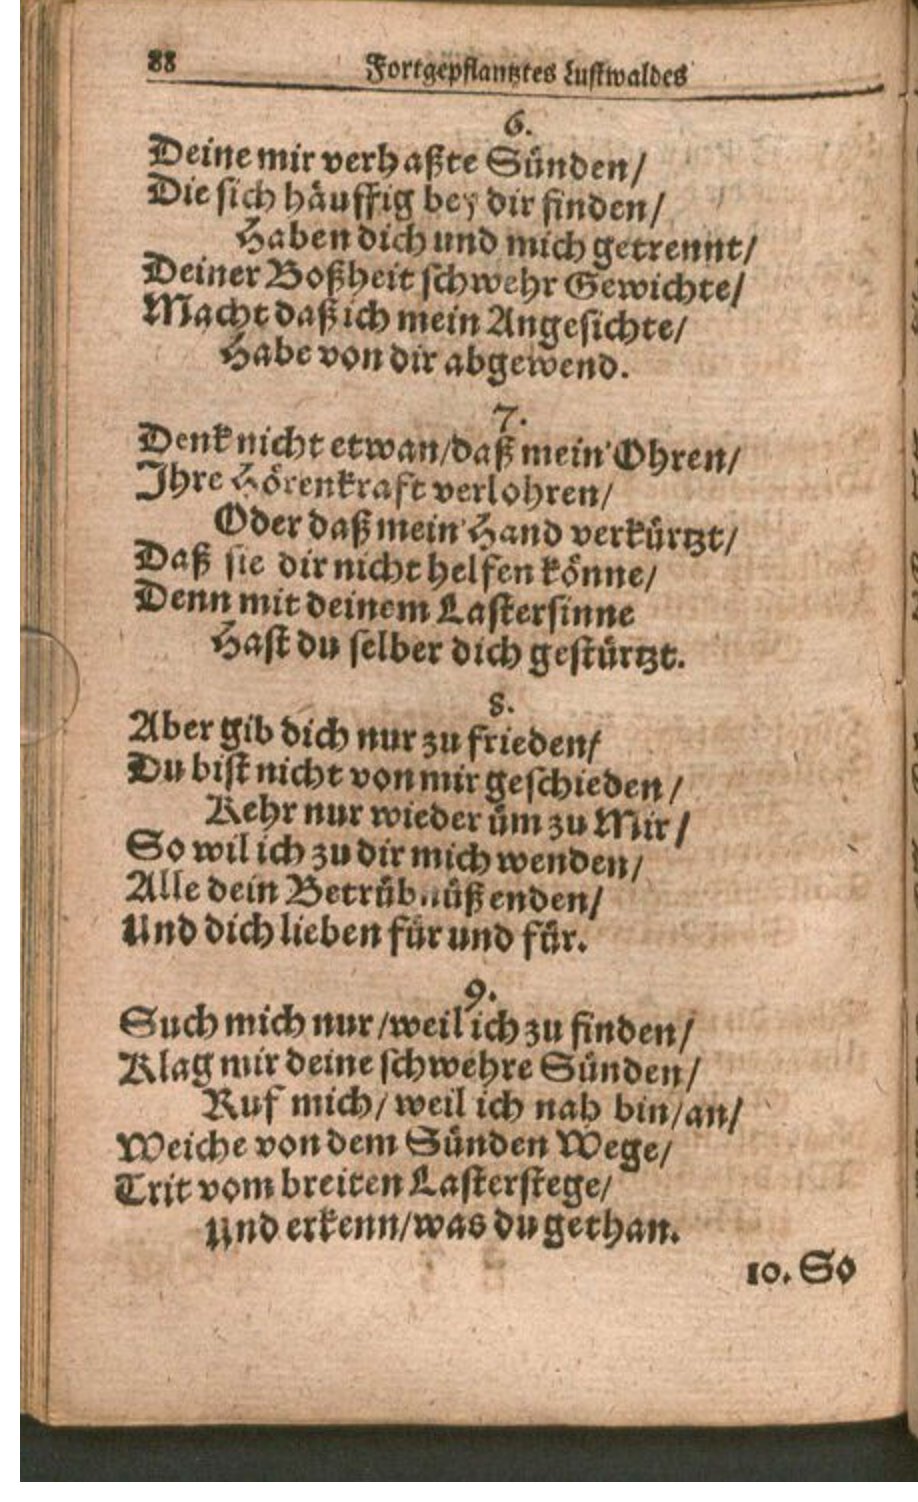 88 Fortgepflantztes Lustwaldes
6.
Deine mir verhaßte Sünden/
Die sich häuffig bey dir finden/
Haben dich und mich getrennt/
Deiner Boßheit schwehr Gewichte/
Macht daß ich mein Angesichte/
Habe von dir abgewend.
7.
Denk nicht etwan/daß mein' Ohren/
Ihre Hörenkraft verlohren/
Oder daß mein' Hand verkürtzt/
Daß sie dir nicht helfen könne/
Denn mit deinem Lastersinne
Hast du selber dich gestürtzt.
8.
Aber gib dich nur zu frieden/
Du bist nicht von mir geschieden/
Kehr nur wieder üm zu Mir/
So wil ich zu dir mich wenden/
Alle dein Betrübnüß enden/
Und dich lieben für und für.
9.
Such mich nur/weil ich zu finden/
Klag mir deine schwehre Sünden/
Ruf mich/ weil ich nah bin/an/
Weiche von dem Sünden Wege/
Trit vom breiten Lasterstege/
Und erkenn/was du gethan.
10. So